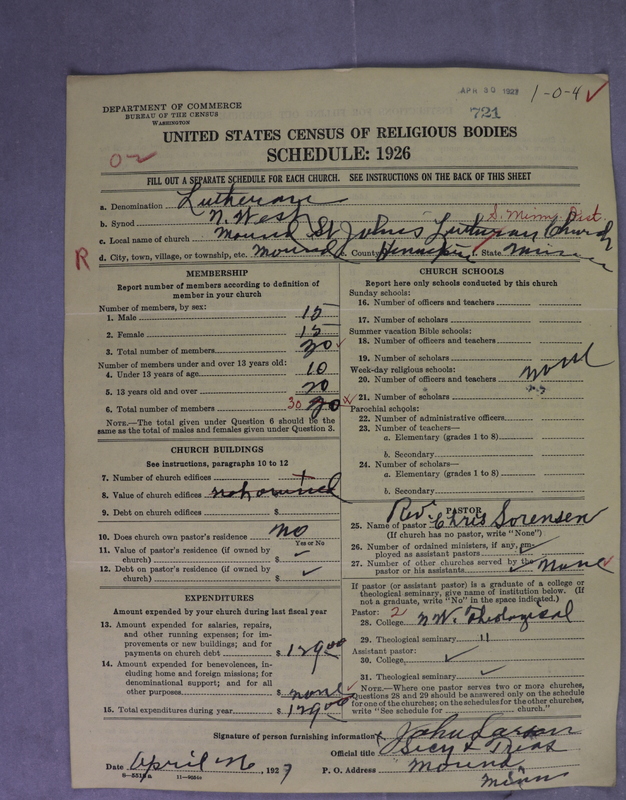 APR 30 1927 1-0-4 ✓
721
DEPARTMENT OF COMMERCE
BUREAU OF THE CENSUS
WASHINGTON
UNITED STATES CENSUS OF RELIGIOUS BODIES
SCHEDULE: 1926
FILL OUT A SEPARATE SCHEDULE FOR EACH CHURCH. SEE INSTRUCTIONS ON THE BACK OF THIS SHEET
a. Denomination Lutheran
b. Synod N. West S. Minn. Dist.
c. Local name of church Mound St Johns Lutheran Church
R
d. City, town, village, or township, etc. Mound e. County Hennepin f. State Minn
MEMBERSHIP
Report number of members according to definition of
member in your church
Number of members, by sex:
1. Male 15
2. Female 15
3. Total number of members 30 ✓
Number of members under and over 13 years old:
4. Under 13 years of age 10
5. 13 years old and over 20
6. Total number of members 30 30
NOTE.—The total given under Question 6 should be the
same as the total of males and females given under Question 3.
CHURCH BUILDINGS
See instructions, paragraphs 10 to 12
7. Number of church edifices
8. Value of church edifices not owned
9. Debt on church edifices $
10. Does church own pastor's residence? No
Yes or No
11. Value of pastor's residence (if owned by
church) $ ✓
12. Debt on pastor's residence (if owned by
church) $ ✓
EXPENDITURES
Amount expended by your church during last fiscal year
13. Amount expended for salaries, repairs,
and other running expenses; for im-
provements or new buildings; and for
payments on church debt $ 129 00
14. Amount expended for benevolences, in-
cluding home and foreign missions; for
denominational support; and for all
other purposes $ none ✓
15. Total expenditures during year $ 129 00
CHURCH SCHOOLS
Report here only schools conducted by this church
Sunday schools:
16. Number of officers and teachers
17. Number of scholars
Summer vacation Bible schools:
18. Number of officers and teachers
19. Number of scholars
Week-day religious schools:
20. Number of officers and teachers none
21. Number of scholars
Parochial schools:
22. Number of administrative officers
23. Number of teachers—
a. Elementary (grades 1 to 8)
b. Secondary
24. Number of scholars—
a. Elementary (grades 1 to 8)
b. Secondary
PASTOR
25. Name of pastor Rev. Chris Sorensen
(If church has no pastor, write "None")
26. Number of ordained ministers, if any, em-
ployed as assistant pastors
27. Number of other churches served by the
pastor or his assistants ✓ None ✓
If pastor (or assistant pastor) is a graduate of a college or
theological seminary, give name of institution below. (If
not a graduate, write "No" in the space indicated.)
Pastor: 2
28. College N.W. Theological
29. Theological seminary "
Assistant pastor:
30. College ✓
31. Theological seminary ✓
NOTE.—Where one pastor serves two or more churches,
Questions 28 and 29 should be answered only on the schedule
for one of the churches; on the schedules for the other churches,
write "See schedule for church."
Signature of person furnishing information John Larson
Official title Secy & Treas
Date April 26, 1927 P. O. Address Mound
Minn